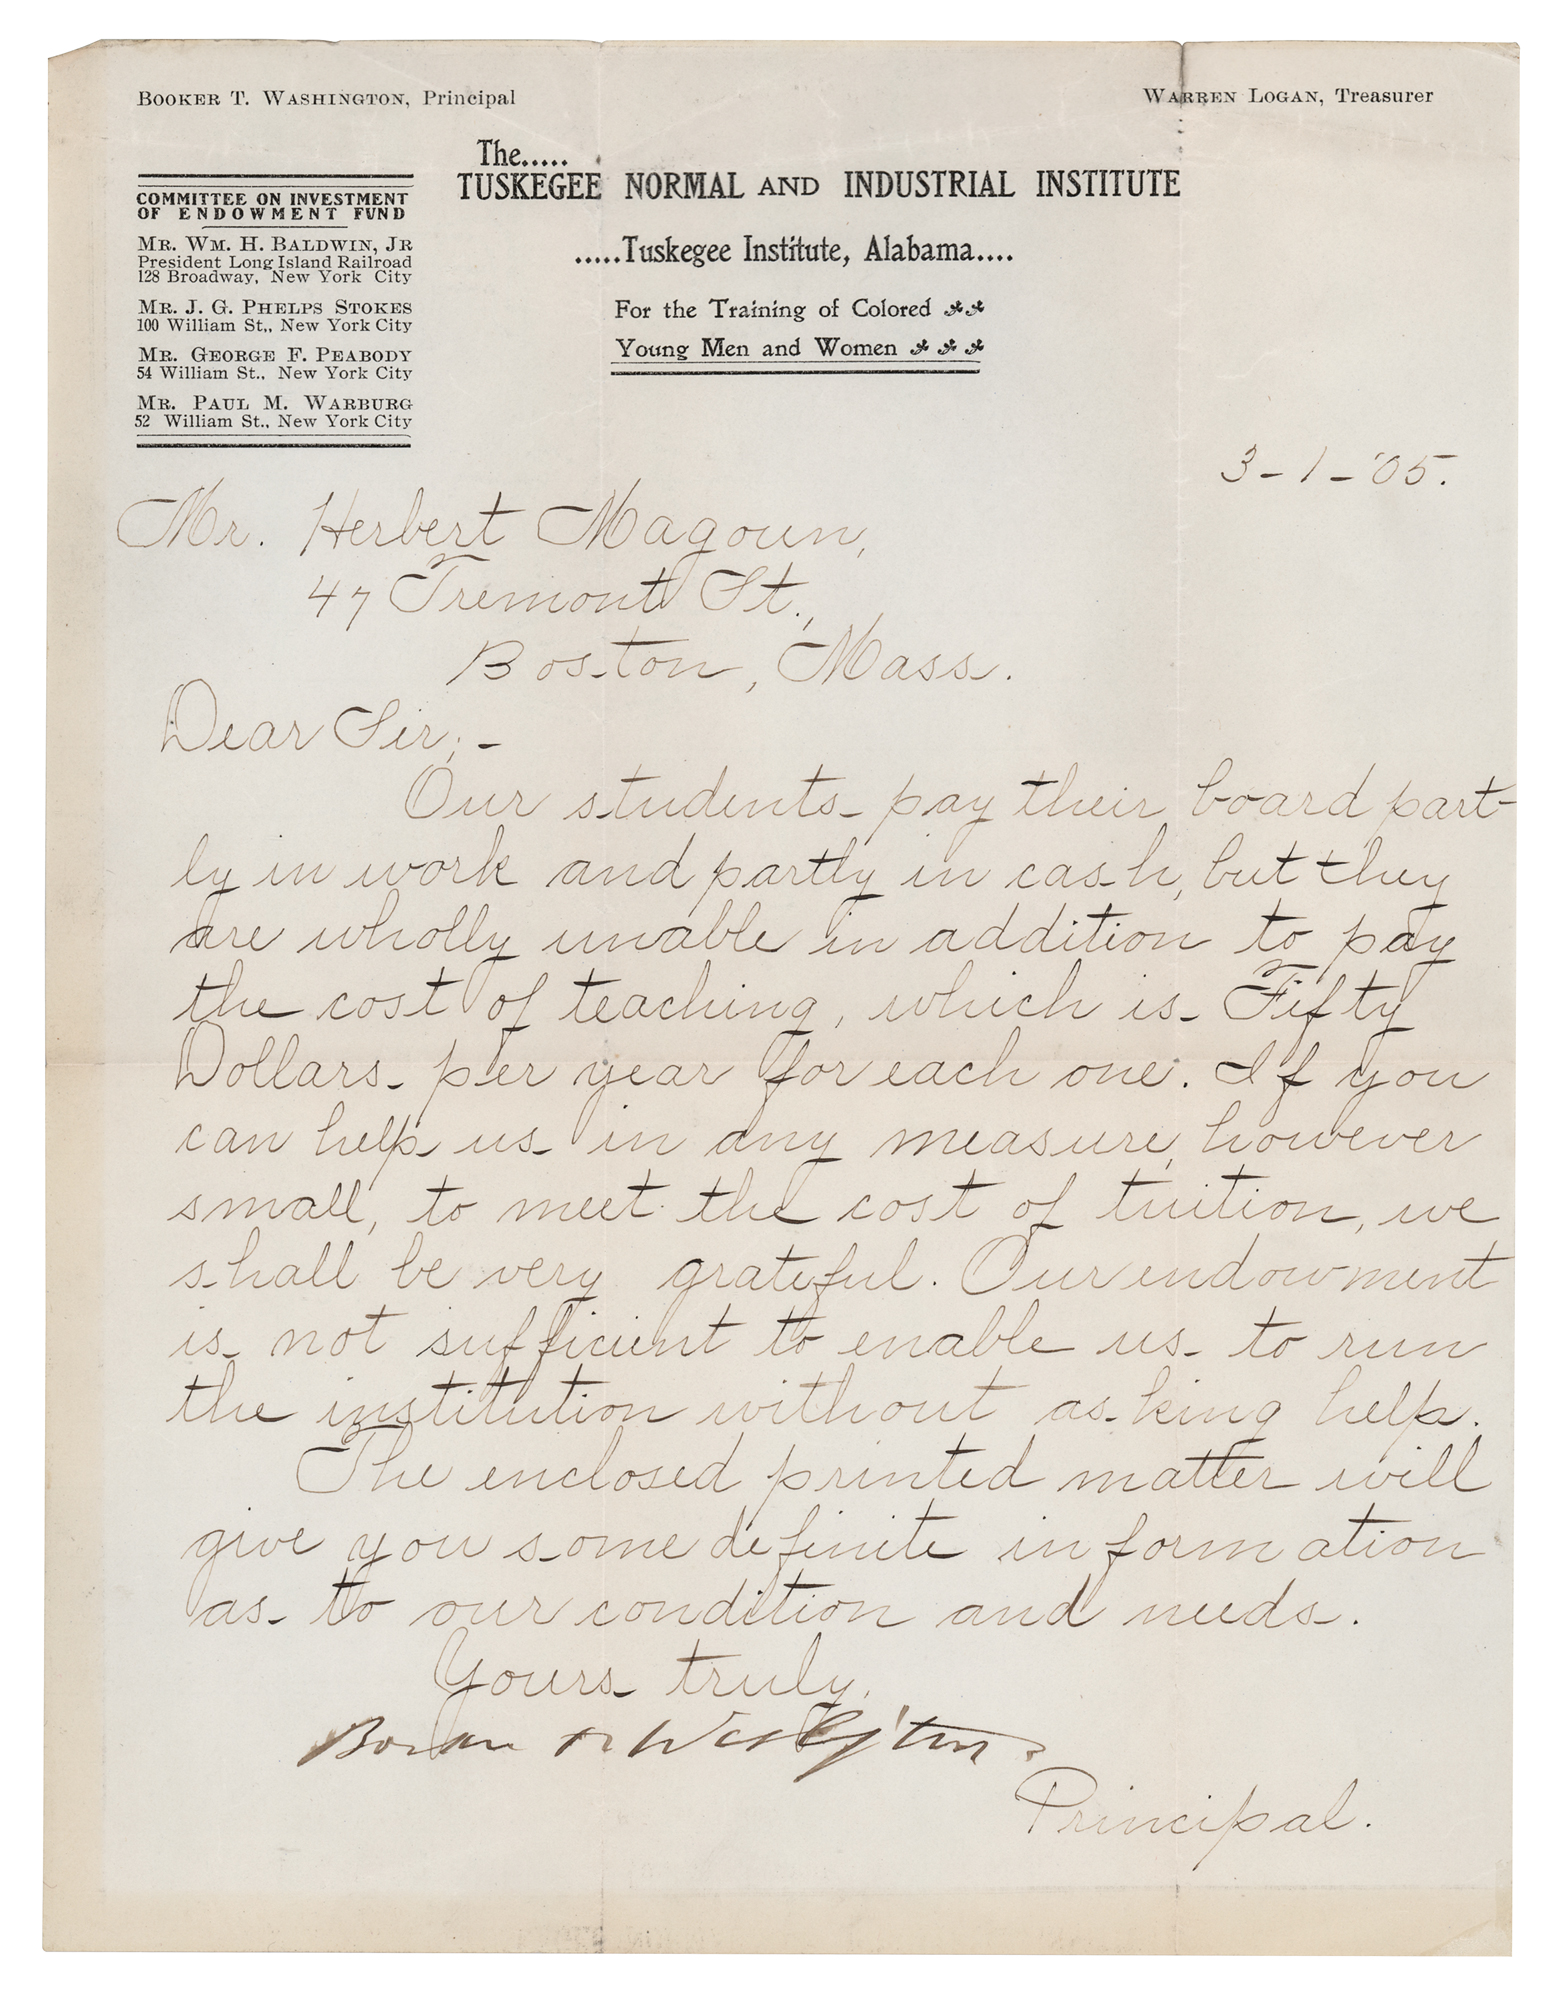 BOOKER T. WASHINGTON, Principal
WARREN LOGAN, Treasurer
The.....
TUSKEGEE NORMAL AND INDUSTRIAL INSTITUTE
.....Tuskegee Institute, Alabama....
For the Training of Colored
Young Men and Women
COMMITTEE ON INVESTMENT
OF ENDOWMENT FUND
MR. WM. H. BALDWIN, JR
President Long Island Railroad
128 Broadway, New York City
MR. J. G. PHELPS STOKES
100 William St., New York City
MR. GEORGE F. PEABODY
54 William St., New York City
MR. PAUL M. WARBURG
52 William St., New York City
3-1-'05.
Mr. Herbert Magoun,
47 Tremont St.,
Boston, Mass.
Dear Sir;-
Our students pay their board part-
ly in work and partly in cash, but they
are wholly unable in addition to pay
the cost of teaching, which is Fifty
Dollars per year for each one. If you
can help us in any measure, however
small, to meet the cost of tuition, we
shall be very grateful. Our endowment
is not sufficient to enable us to run
the institution without asking help.
The enclosed printed matter will
give you some definite information
as to our condition and needs.
Yours truly,
Booker T. Washington
Principal.